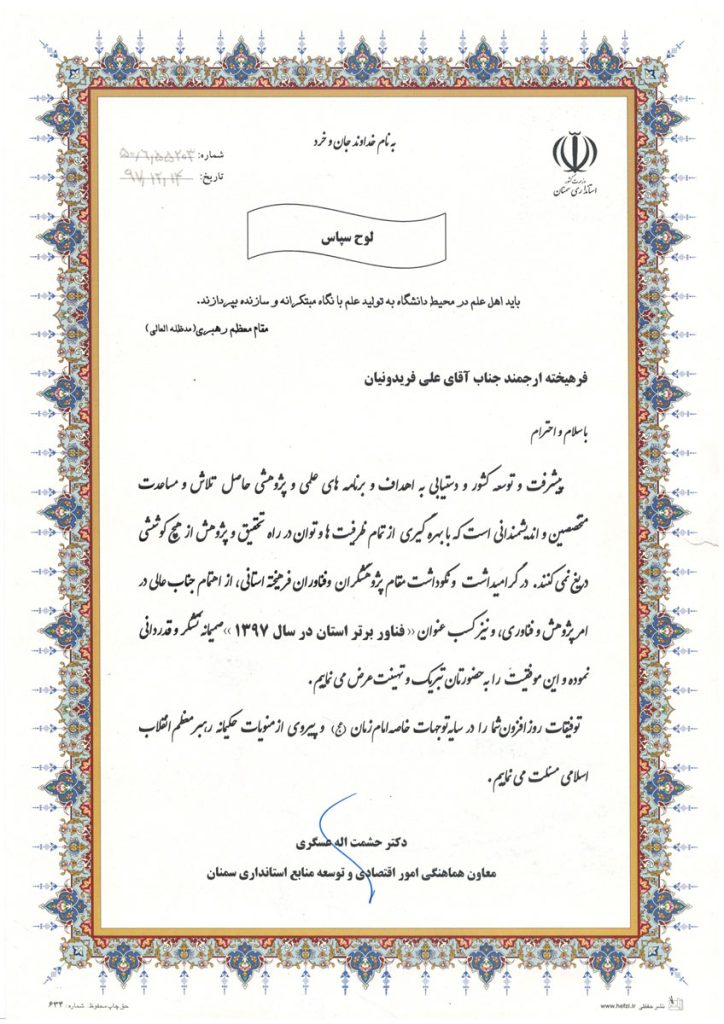 به نام خداوند جان و خرد
وزارت کشور
استانداری سمنان
شماره: ۵۰/۶,۵۵۲۰۳
تاریخ: ۹۷,۱۲,۱۴
لوح سپاس
باید اهل علم در محیط دانشگاه به تولید علم با نگاه مبتکرانه و سازنده بپردازند.
مقام معظم رهبری(مدظله العالی)
فرهیخته ارجمند جناب آقای علی فریدونیان
با سلام و احترام
پیشرفت و توسعه کشور و دستیابی به اهداف و برنامه های علمی و پژوهشی حاصل تلاش و مساعدت
متخصصین و اندیشمندانی است که با بهره گیری از تمام ظرفیت ها و توان در راه تحقیق و پژوهش از هیچ کوششی
دریغ نمی کنند. در گرامیداشت و نکوداشت مقام پژوهشگران و فناوران فرهیخته استانی، از اهتمام جناب عالی در
امر پژوهش و فناوری، و نیز کسب عنوان «فناور برتر استان در سال ۱۳۹۷» صمیمانه تشکر و قدردانی
نموده و این موفقیت را به حضورتان تبریک و تهنیت عرض می نمایم.
توفیقات روز افزون شما را در سایه توجهات خاصه امام زمان (عج) و پیروی از منویات حکیمانه رهبر معظم انقلاب
اسلامی مسئلت می نمایم.
دکتر حشمت اله عسگری
معاون هماهنگی امور اقتصادی و توسعه منابع استانداری سمنان
نشر حفظی www.hefzi.ir
حق چاپ محفوظ شماره: ۶۳۴